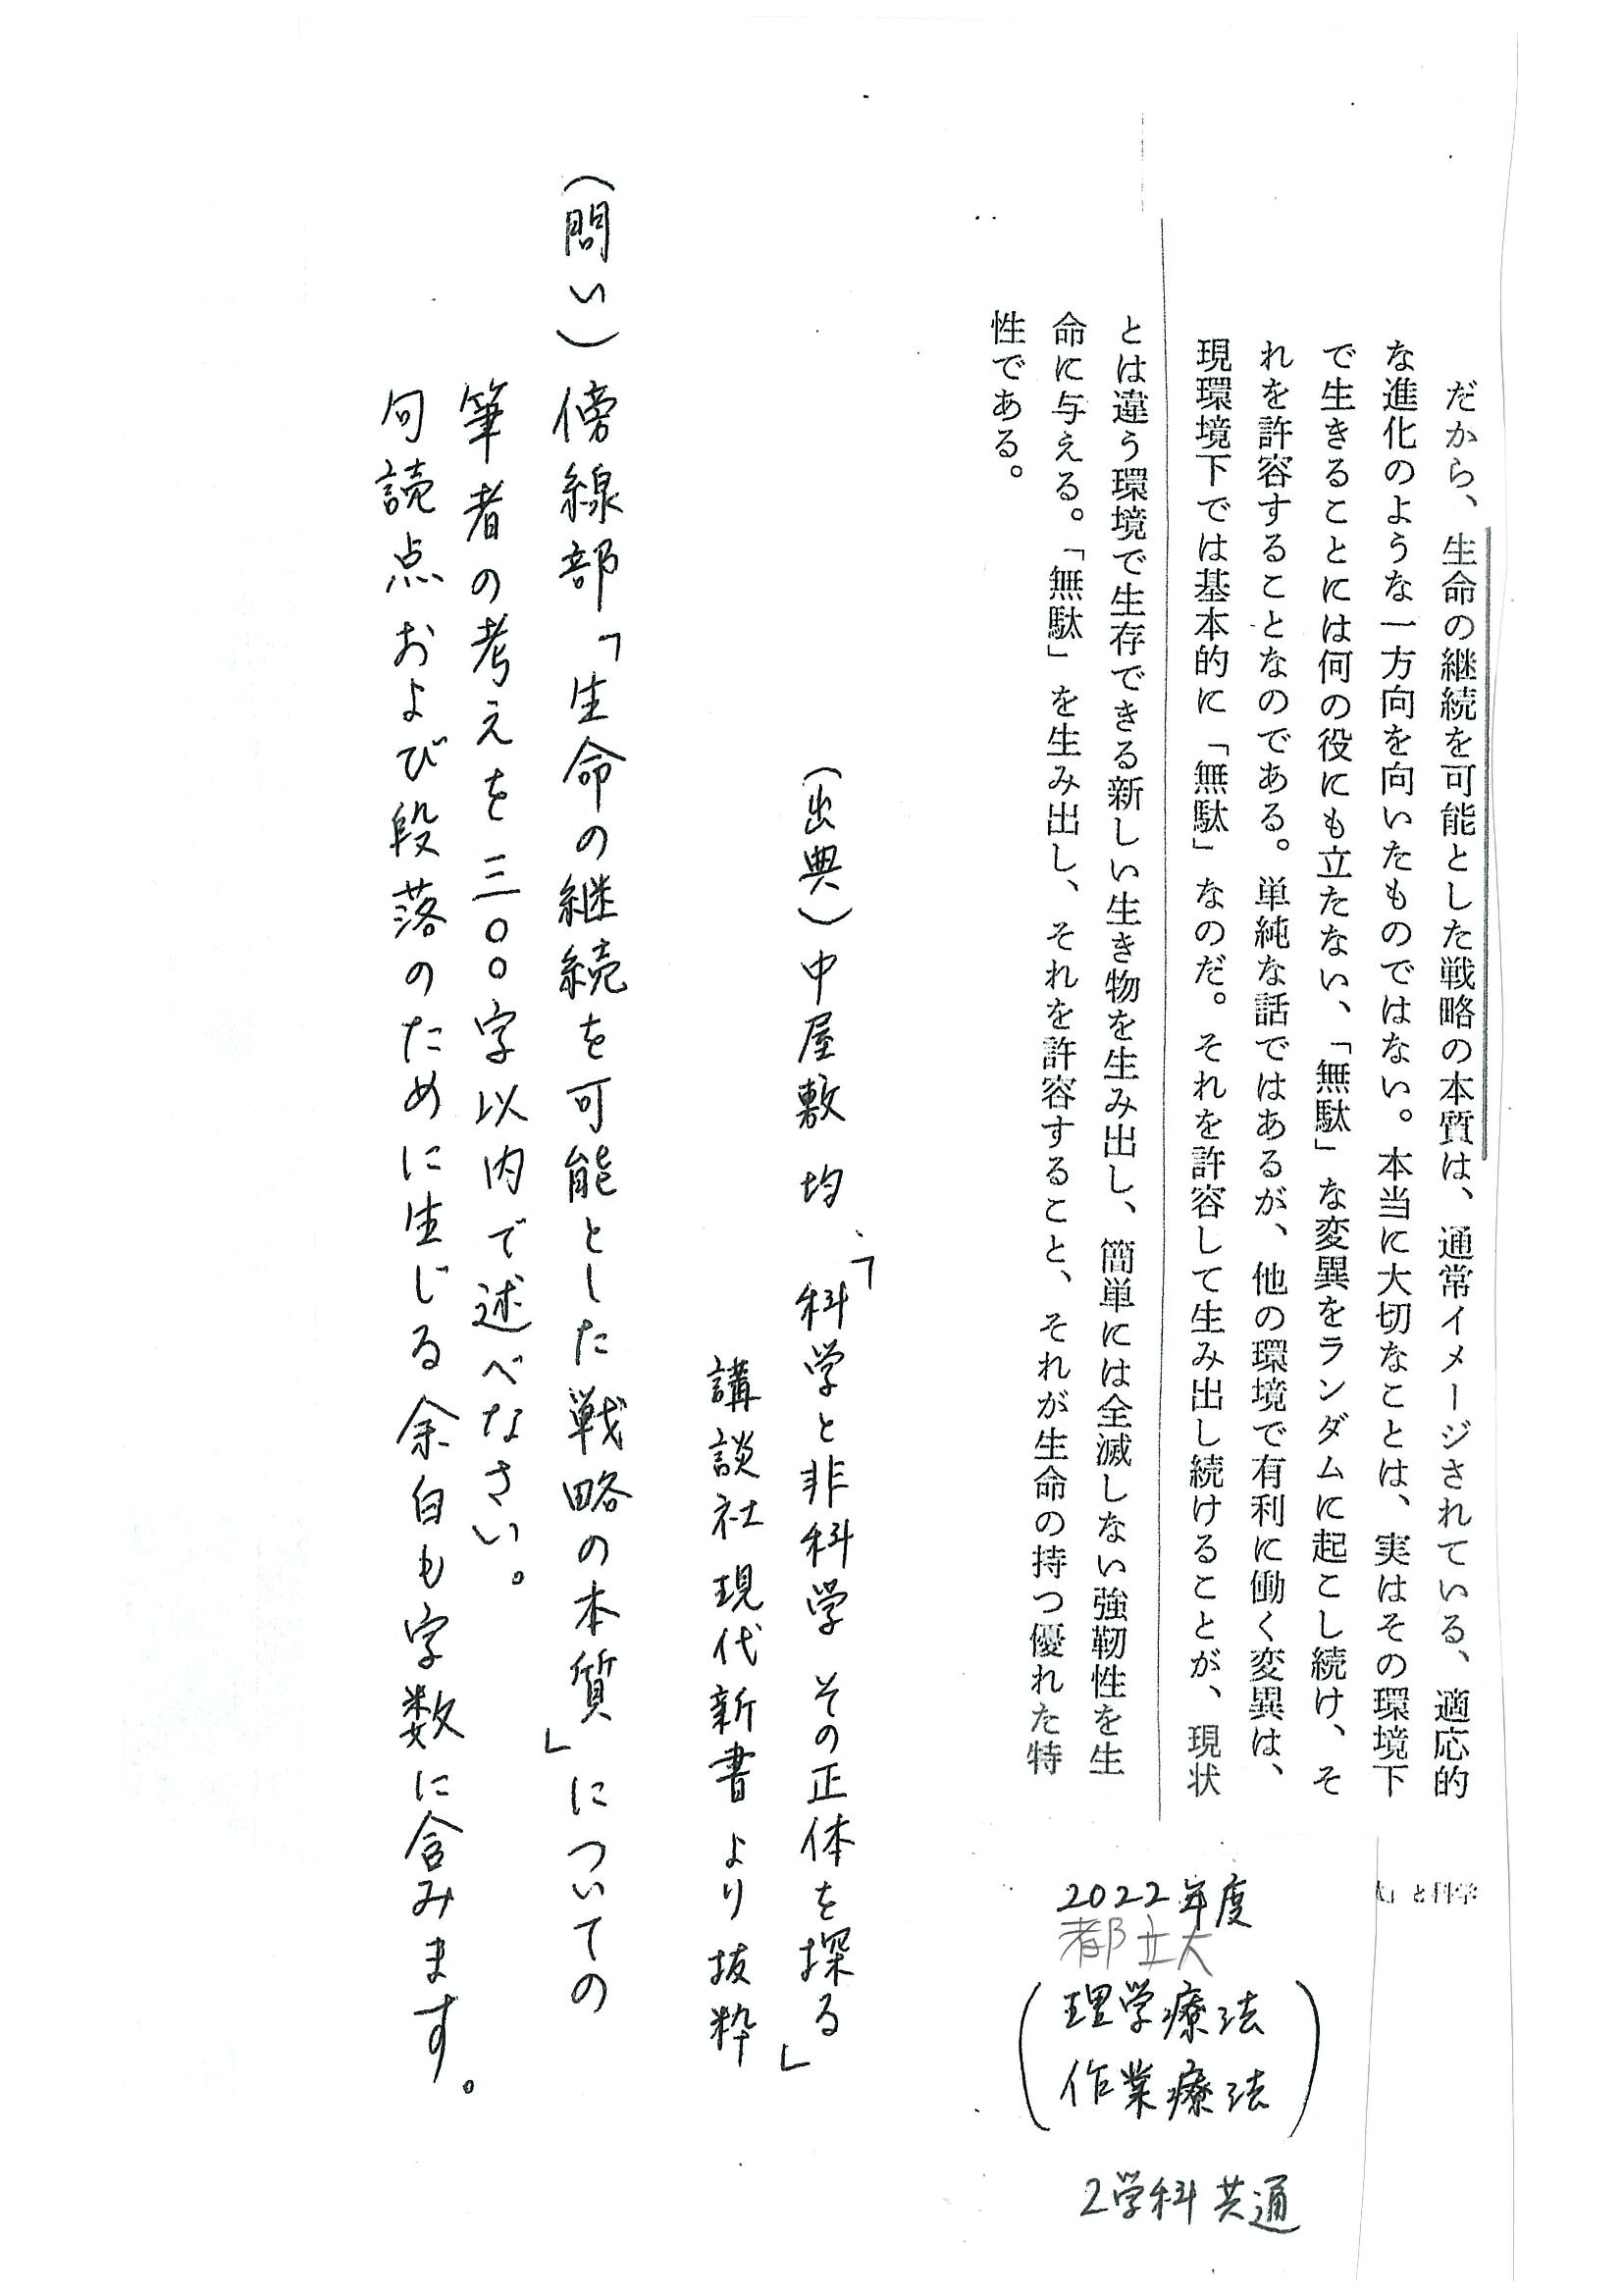 だから、生命の継続を可能とした戦略の本質は、通常イメージされている、適応的
な進化のような一方向を向いたものではない。本当に大切なことは、実はその環境下
で生きることには何の役にも立たない、「無駄」な変異をランダムに起こし続け、そ
れを許容することなのである。単純な話ではあるが、他の環境で有利に働く変異は、
現環境下では基本的に「無駄」なのだ。それを許容して生み出し続けることが、現状
とは違う環境で生存できる新しい生き物を生み出し、簡単には全滅しない強靭性を生
命に与える。「無駄」を生み出し、それを許容すること、それが生命の持つ優れた特
性である。
（出典）中屋敷 均 「科学と非科学 その正体を探る」
講談社現代新書より抜粋
（問い）傍線部「生命の継続を可能とした戦略の本質」についての
筆者の考えを三〇〇字以内で述べなさい。
句読点および段落のために生じる余白も字数に含みます。
」と科学
2022年度
都立大
（理学療法
作業療法）
2学科共通